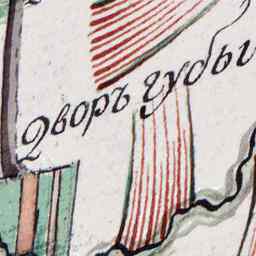 Дворъ губы